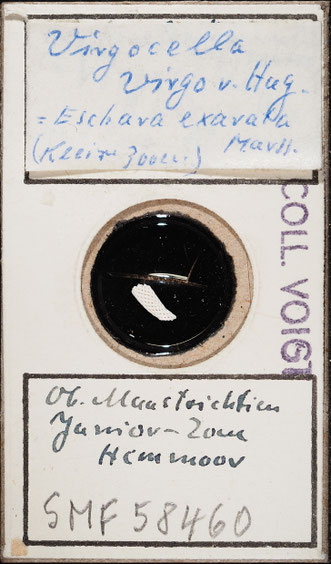 Virgocella
Virgo v. Hag.
= Eschara exarata
(Kleine Zooecien) Marss.
COLL. VOIGT
Ob. Maastrichtien
Junior-Zone
Hemmoor
SMF 58460